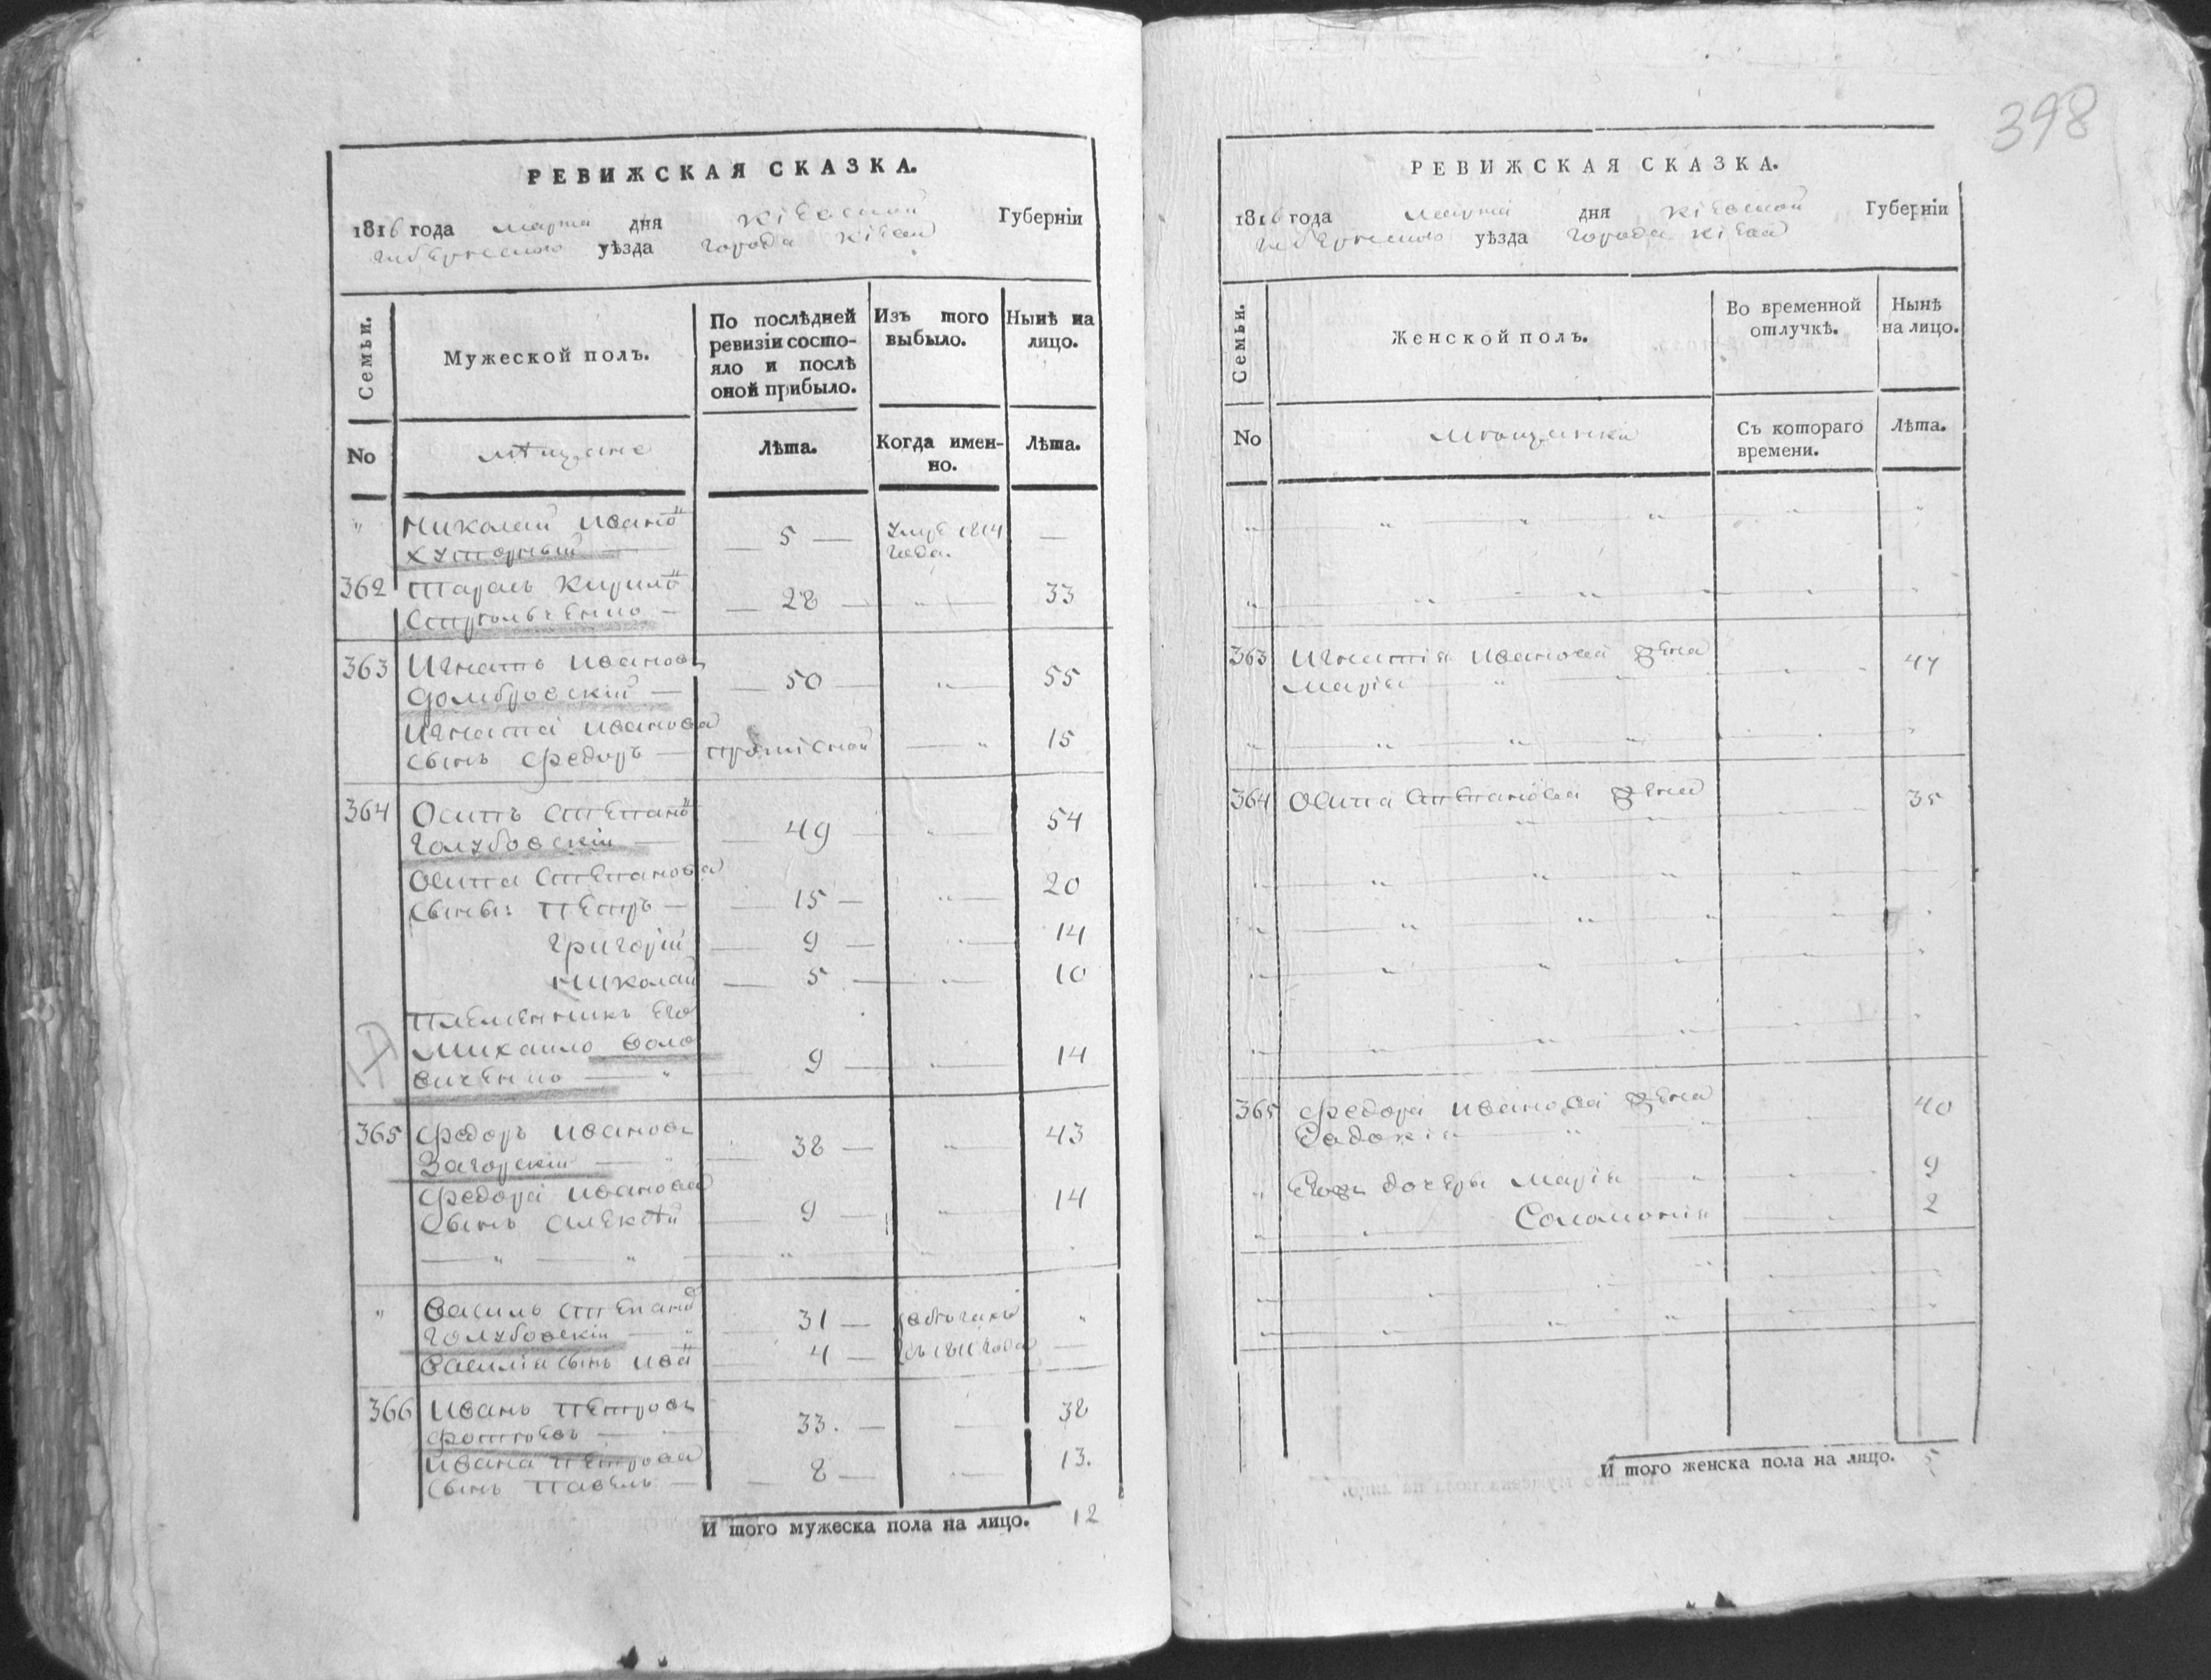 398
РЕВИЖСКАЯ СКАЗКА.
1816 года марта дня Кіевской Губерніи
уѣзда города Кіева
Семьи.
Мужеской полъ.
По послѣдней ревизіи состояло и послѣ оной прибыло.
Изъ того выбыло.
Нынѣ на лицо.
No
мѣщане
Лѣта.
Когда именно.
Лѣта.
" Николай Ивано — 5 — умре 1814 —
Хуторный — года.
362 Тарасъ Кирило — 28 — " — 33
363 Игнатъ Ивановъ — 50 — " 55
Домбровскій —
Игната Иванова
сынъ Федоръ — прописной — " 15
364 Осипъ Степано — 49 — " 54
Голубовскій —
Осипа Степанова
сыны: Петръ — 15 — " 20
Григорій — 9 — " — 14
Николай — 5 — " — 10
Племенникъ его
Михайло Воло
виченко — " 9 — " 14
365 Федоръ Ивановъ 38 — " 43
Загорскій —
Федора Иванова
сынъ Алексѣй 9 — " 14
" Василь Степано 31 — "
Голубовскій — "
Василія сынъ Ива 4 — съ 1811 года —
366 Иванъ Петровъ 33. — — 38
Ивана Петрова
сынъ Павелъ — 8 — " 13.
И того мужеска пола на лицо. 12
РЕВИЖСКАЯ СКАЗКА.
1816 года марта дня Кіевской Губерніи
уѣзда города Кіева
Семьи.
Женской полъ.
Во временной отлучкѣ.
Нынѣ на лицо.
No
мѣщанки
Съ котораго времени.
Лѣта.
363 Игнатія Иванова жена
Марія 47
364 Осипа Степанова жена 35
365 Федора Иванова жена 40
Евдокія
" дочери Марія 9
Соломонія 2
И того женска пола на лицо. 5